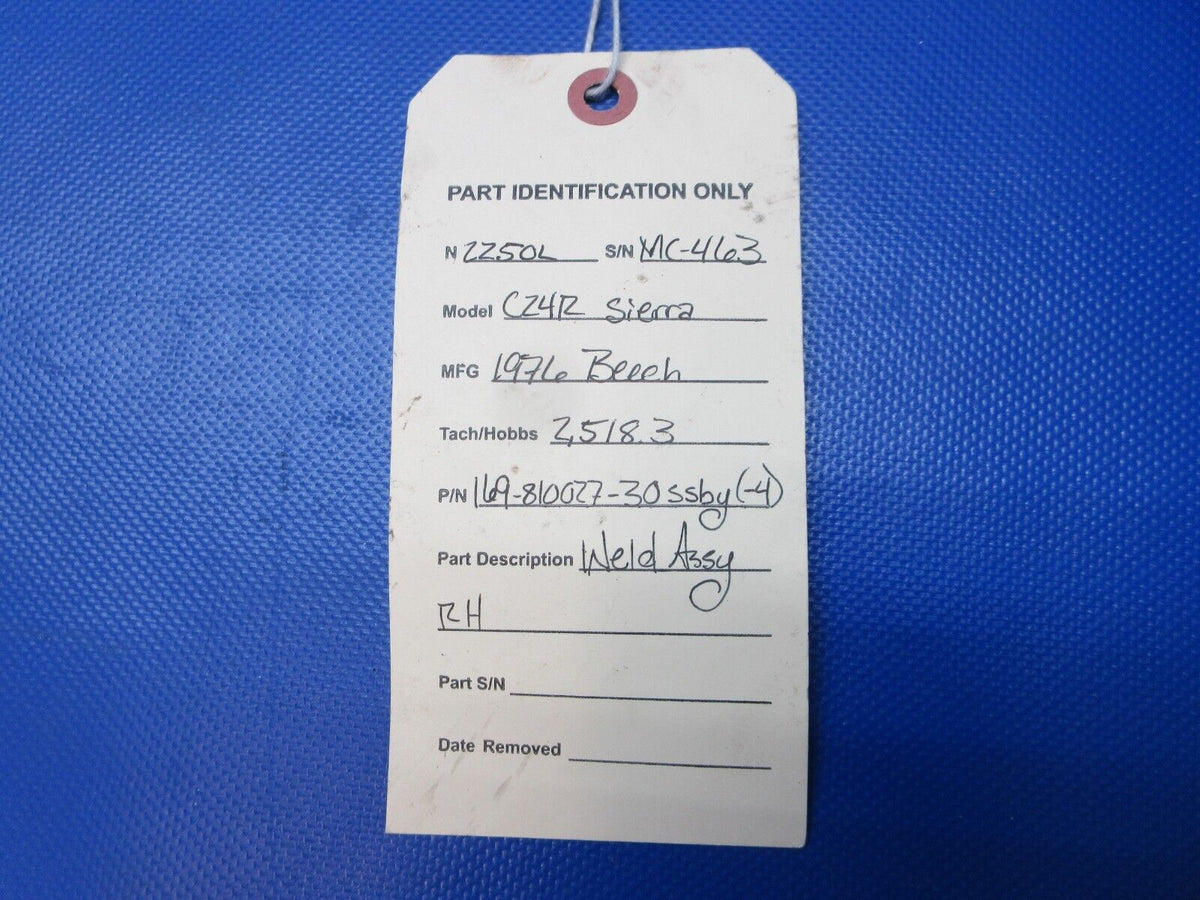 PART IDENTIFICATION ONLY
N 2250L S/N MC-463
Model C24R Sierra
MFG 1976 Beech
Tach/Hobbs 2,518.3
P/N 169-810027-30 ssby (-4)
Part Description Weld Assy
RH
Part S/N
Date Removed